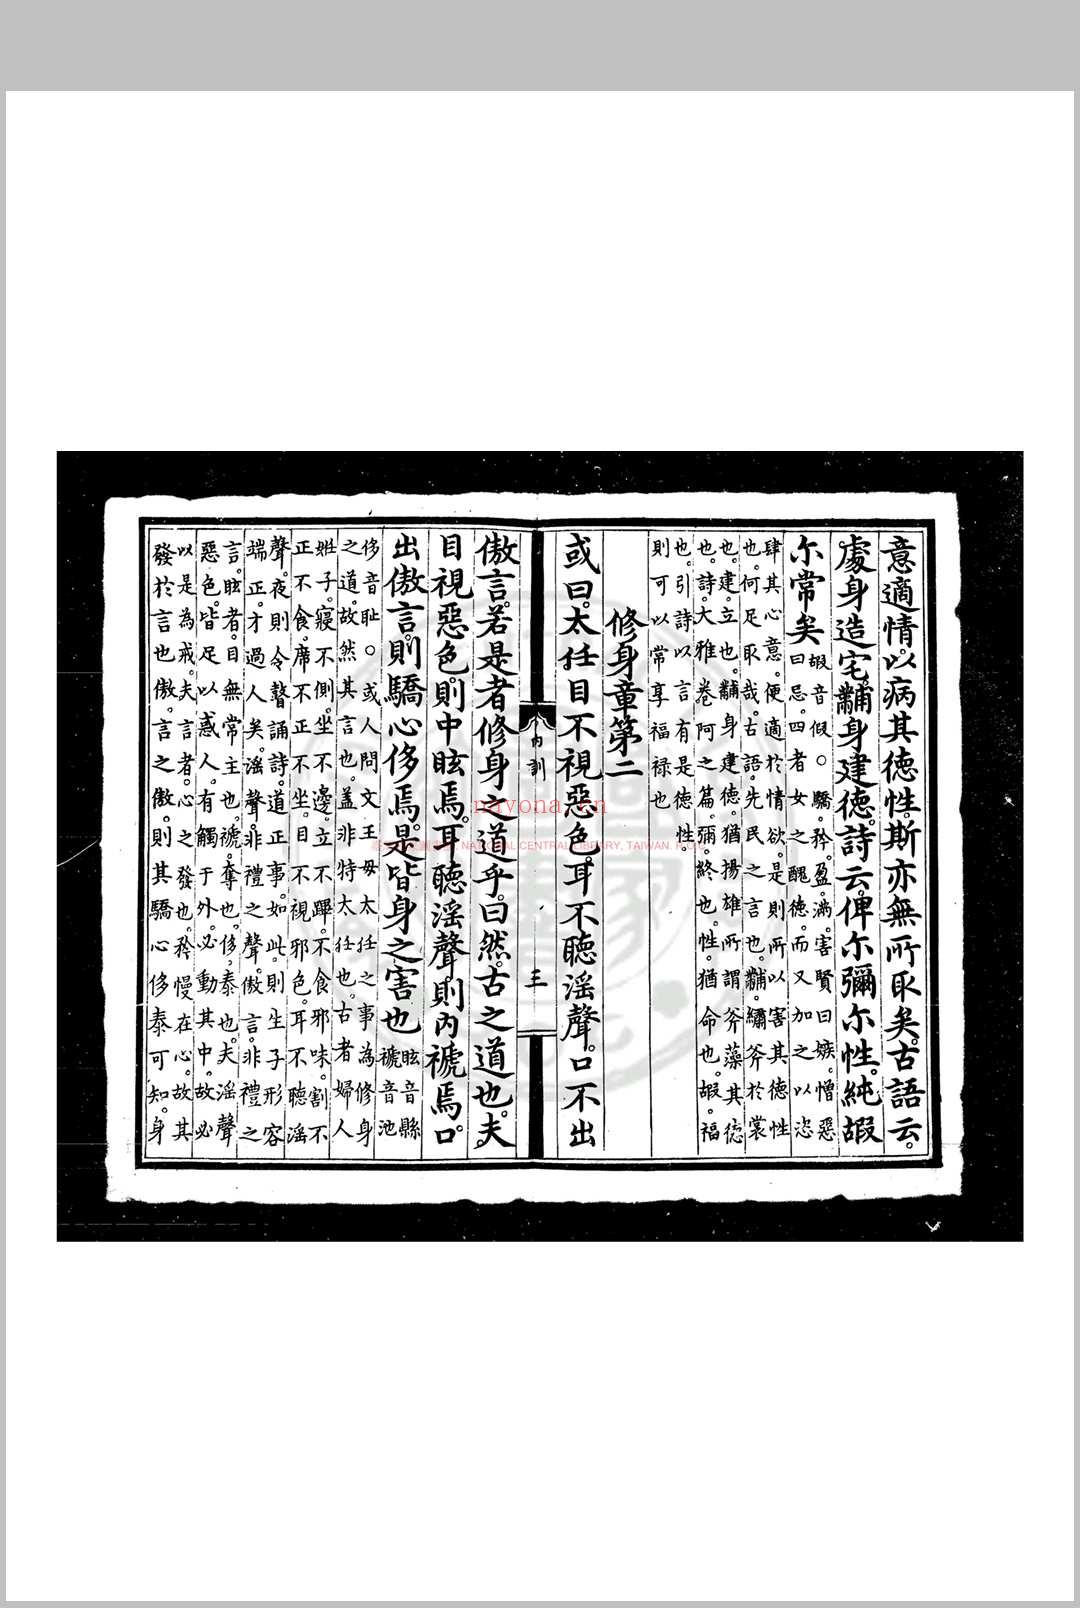 意適情。以病其德性。斯亦無所取矣。古語云。
處身造宅。黼身建德。詩云。俾尔彌尔性。純嘏
尔常矣。
嘏音假。○驕。矜。盈。滿。害賢曰嫉。憎惡
曰忌。四者女之醜德。而又加之以恣
肆其心意。便適於情欲。是則所以害其德性
也。何足取哉。古語。先民之言也。黼。繡斧於裳
也。建。立也。黼身建德。猶揚雄所謂斧藻其德
也。詩。大雅卷阿之篇。彌。終也。性。猶命也。嘏。福
也。引詩以言有是德性。
則可以常享福祿也
修身章第二
或曰。太任目不視惡色。耳不聽淫聲。口不出
內訓
三
傲言。若是者修身之道乎。曰然。古之道也。夫
目視惡色。則中眩焉。耳聽淫聲則內褫焉。口
出傲言。則驕心侈焉。是皆身之害也
眩音縣
褫音池
侈音恥。○或人問文王母太任之事為修身
之道。故然其言也。蓋非特太任也。古者婦人
姙子。寢不側。坐不邊。立不蹕。不食邪味。割不
正不食。席不正不坐。目不視邪色。耳不聽淫
聲。夜則令瞽誦詩。道正事。如此。則生子形容
端正。才過人矣。淫聲。非禮之聲。傲言。非禮之
言。眩者。目無常主也。褫。奪也。侈。泰也。夫淫聲
惡色。皆足以惑人。有觸于外。必動其中。故必
以是為戒。夫言者。心之發也。矜慢在心。故其
發於言也傲。言之傲。則其驕心侈泰可知。身
nayona.cn
NATIONAL CENTRAL LIBRARY, TAIWAN. R.O.C.